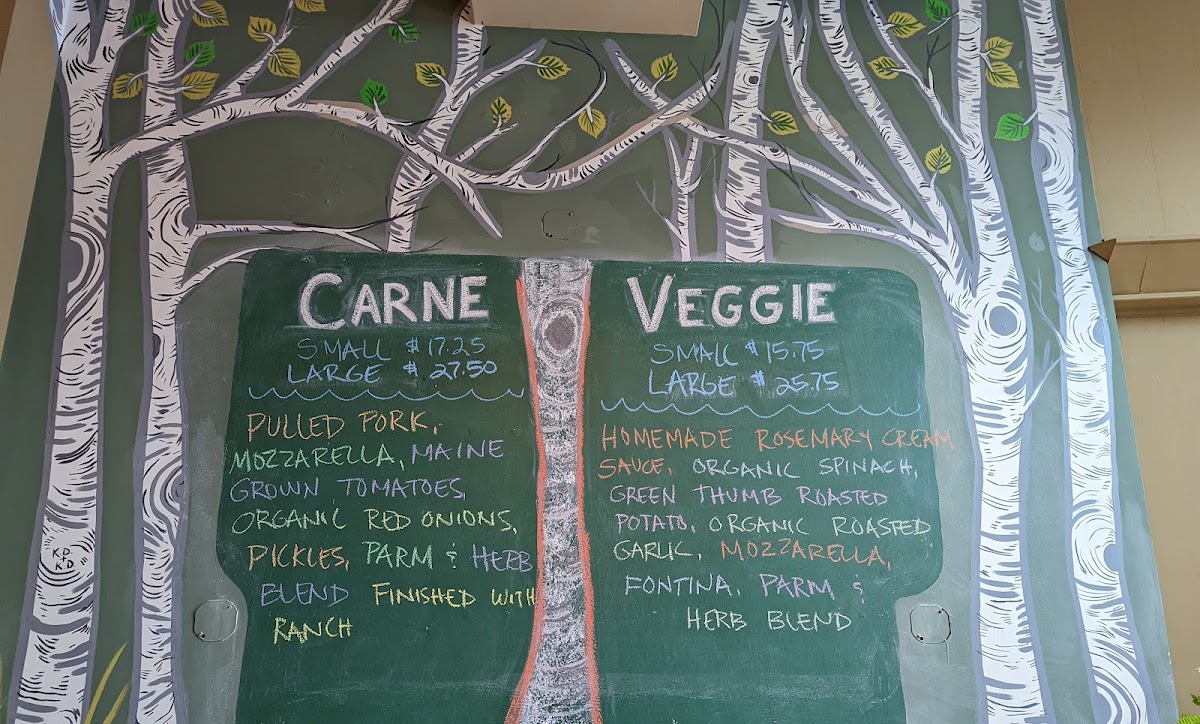 CARNE
SMALL $17.25
LARGE $27.50
PULLED PORK,
MOZZARELLA, MAINE
GROWN TOMATOES,
ORGANIC RED ONIONS,
PICKLES, PARM & HERB
BLEND FINISHED WITH
RANCH
VEGGIE
SMALL $15.75
LARGE $25.75
HOMEMADE ROSEMARY CREAM
SAUCE, ORGANIC SPINACH,
GREEN THUMB ROASTED
POTATO, ORGANIC ROASTED
GARLIC, MOZZARELLA,
FONTINA, PARM &
HERB BLEND